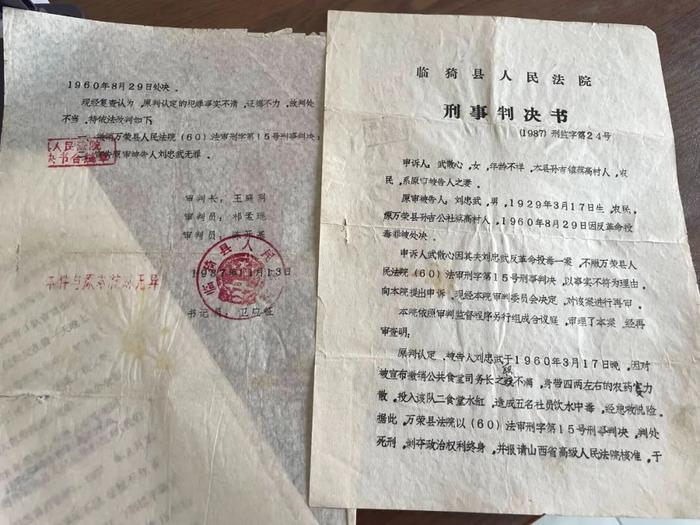 临猗县人民法院
刑事判决书
(1987) 刑监字第24号
申诉人：武散心，女，年龄不详，本县孙吉镇薛高村人，农
民，系原审被告人之妻。
原审被告人：刘忠武，男，1929年3月17日生，农民，
原万荣县孙吉公社薛高村人，1960年8月29日因反革命投
毒罪被处决。
申诉人武散心因其夫刘忠武反革命投毒一案，不服万荣县人
民法院（60）法审刑字第15号刑事判决，以事实不符为理由，
向本院提出申诉，现经本院审判委员会决定，对该案进行再审。
本院依照审判监督程序另行组成合议庭，审理了本案，经再
审查明：
原判认定，被告人刘忠武于1960年3月17日晚，因对
被宣布撤销公共食堂司务长之不满，身带四两左右的农药
散，投入该队二食堂水缸，造成五名社员饮水中毒，经急救脱险。
据此，万荣县法院以（60）法审刑字第15号刑事判决，判处
死刑，剥夺政治权利终身，并报请山西省高级人民法院核准，于
1960年8月29日处决。
现经复查认为，原判认定的犯罪事实不清，证据不力，故判处
不当，特依法改判如下：
一、撤销万荣县人民法院（60）法审刑字第15号刑事判决；
告原审被告人刘忠武无罪。
县人民法院
审判长：王
审判员：祁孟
审判员：陈
临猗县人民
1987年11月13日
本件与原本核对无异
书记员：卫